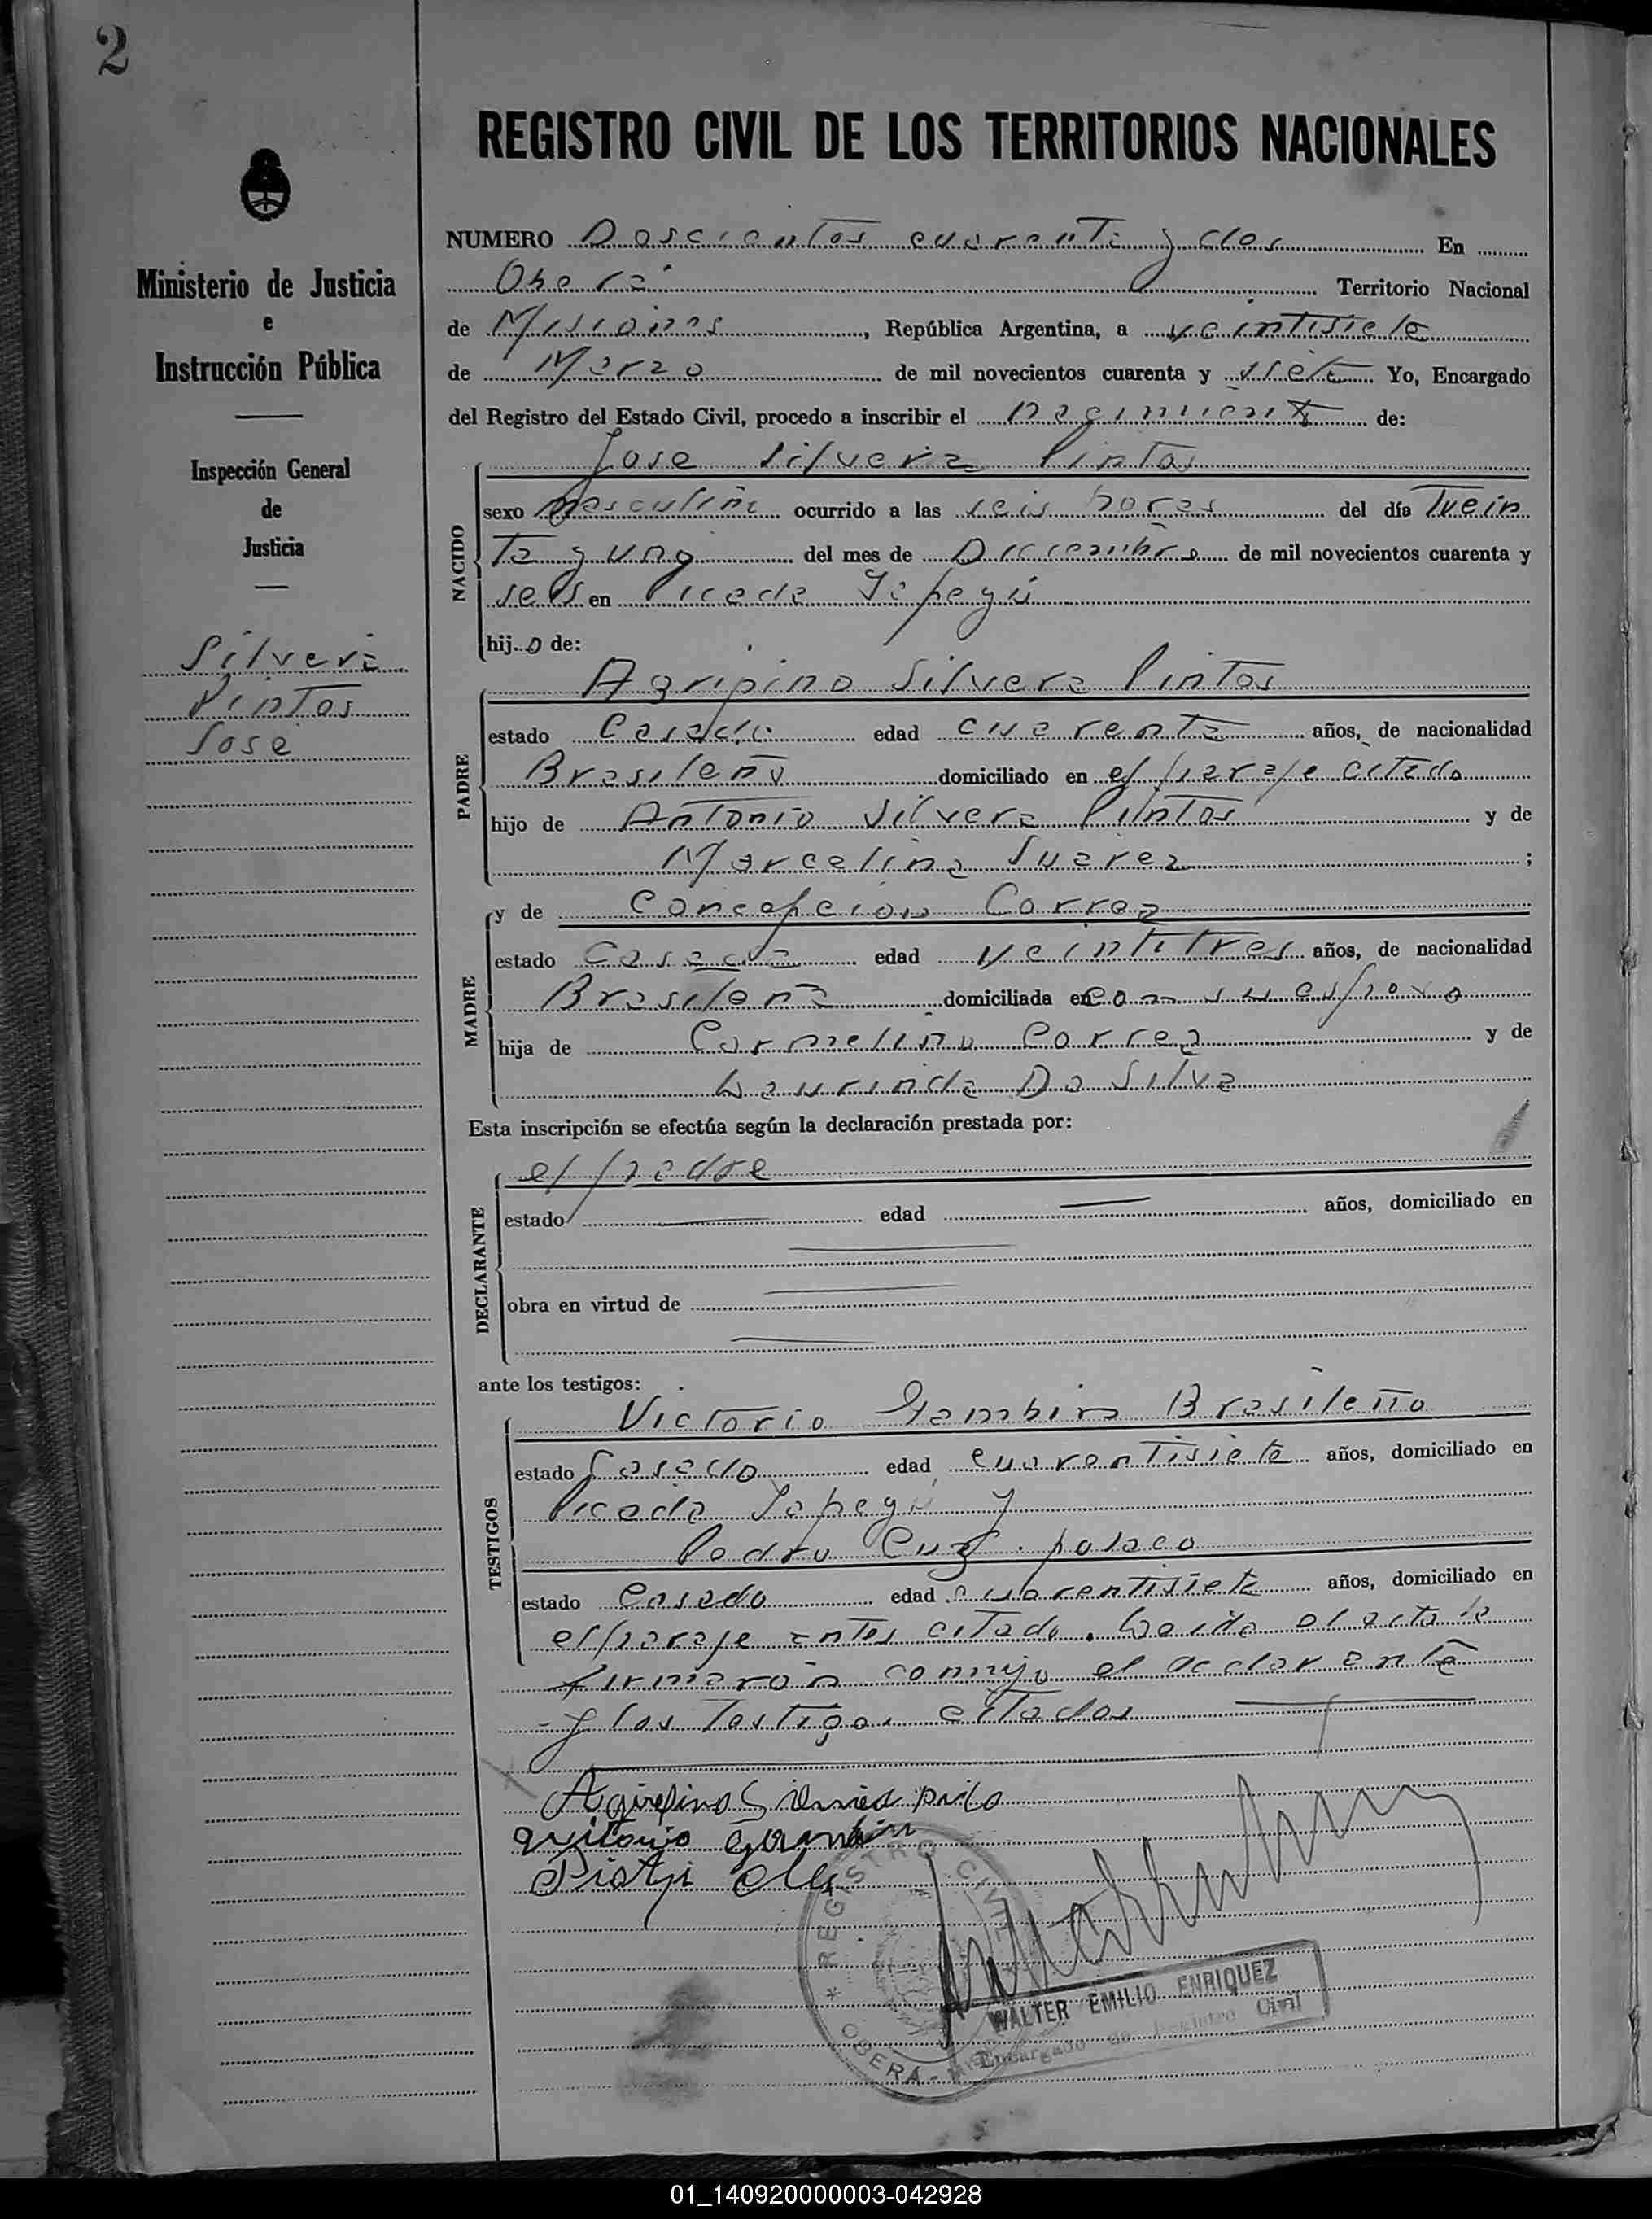 2
REGISTRO CIVIL DE LOS TERRITORIOS NACIONALES
Ministerio de Justicia
e
Instrucción Pública
Inspección General
de
Justicia
Silvera
Pintos
Jose
NUMERO Doscientos cuarenta y dos En
Oberá Territorio Nacional
de Misiones, República Argentina, a veintisiete
de Marzo de mil novecientos cuarenta y siete Yo, Encargado
del Registro del Estado Civil, procedo a inscribir el nacimiento de:
Jose Silvera Pintos
NACIDO
sexo masculino ocurrido a las seis horas del día Trein
ta y uno del mes de Diciembre de mil novecientos cuarenta y
seis en Picada Yapeyú
hijo de:
Agripino Silvera Pintos
PADRE
estado Casado edad cuarenta años, de nacionalidad
Brasileño domiciliado en el paraje citado
hijo de Antonio Silvera Pintos y de
Marcelina Suarez;
MADRE
y de Concepcion Correa
estado Casada edad veintitres años, de nacionalidad
Brasileña domiciliada en con su esposo
hija de Carmelino Correa y de
Laurinda Da Silva
Esta inscripción se efectúa según la declaración prestada por:
DECLARANTE
el padre
estado edad años, domiciliado en
obra en virtud de
ante los testigos:
TESTIGOS
Victorio Gambin Brasileño
estado Casado edad cuarentisiete años, domiciliado en
Picada Yapeyú y
Pedro polaco
estado Casado edad cuarentisiete años, domiciliado en
el paraje antes citado. Leida el acta la
firmaron conmigo el declarante
y los testigos citados
REGISTRO CIVIL
OBERA
WALTER EMILIO ENRIQUEZ
Encargado de Registro Civil
01_140920000003-042928